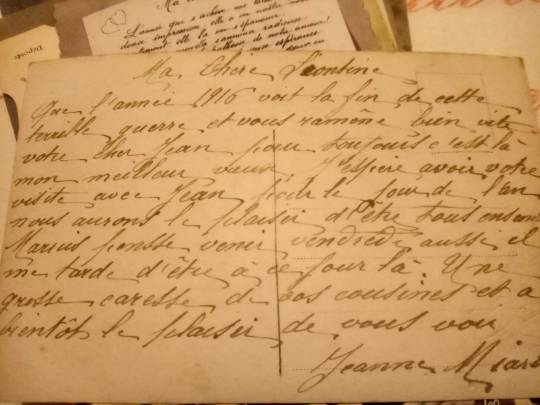 Ma
L'année qui s'achève
douce impression, elle a
Ma Chère Léontine
Que l'année 1916 voit la fin de cette
terrible guerre et vous ramène bien vite
votre cher Jean pour toujours c'est là
mon meilleur vœux, J'espère avoir votre
visite avec Jean pour le jour de l'an
nous aurons le plaisir d'être tous ensem
Marius pensse venir vendredi aussi il
me tarde d'être à ce jour là. Une
grosse caresse de vos cousines et a
bientôt le plaisir de vous voir
Jeanne